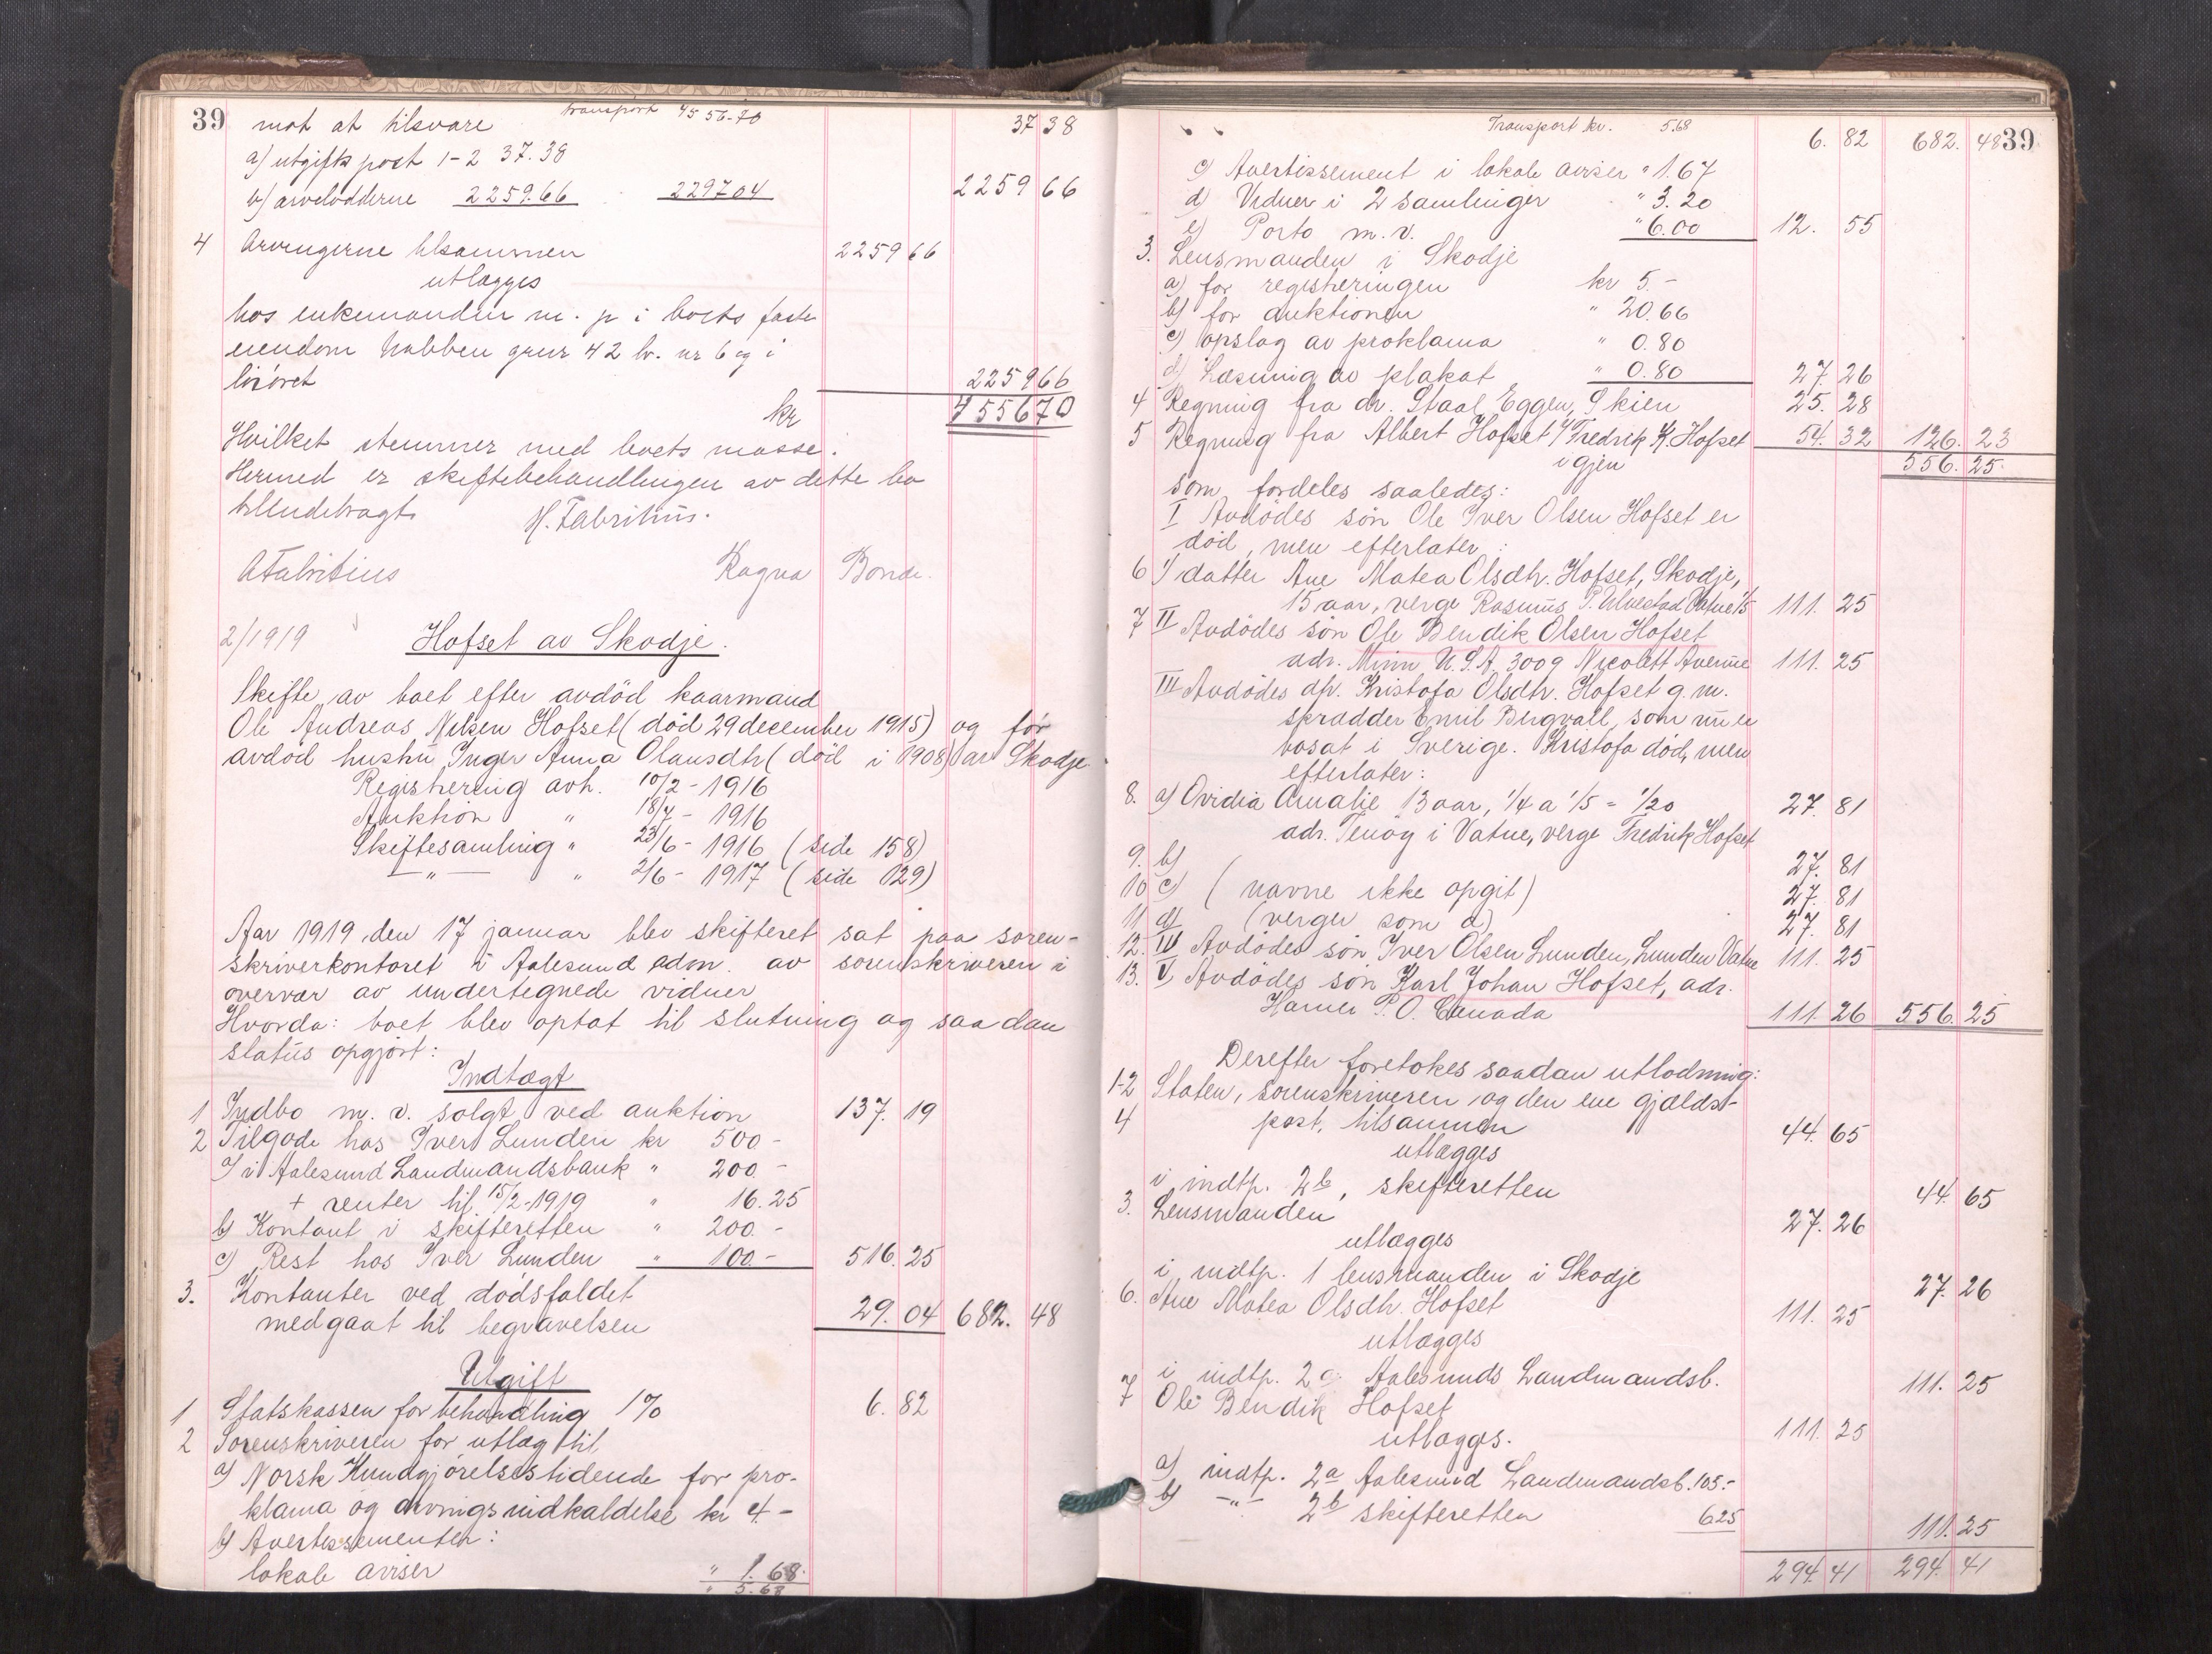 39 mot at tilsvare transport 4556-70 37 38
a) utgifts post 1-2 37.38
b) arvelodderne 2259.66 2297 04 2259 66
4 Arvingerne tilsammen 2259 66
utlægges
hos enkemanden m. p i boets faste
eiendom Nabben grnr 42 br. nr 6 og i
løsøret 2259 66
kr 4556 70
Hvilket stemmer med boets masse.
Hermed er skiftebehandlingen av dette bo
tilendebragt H. Fabritius.
A Fabritius Ragna Bonde.
2/1919 Hofset av Skodje.
Skifte av boet efter avdød kaarmand
Ole Andreas Nilsen Hofset (død 29 december 1915) og før
avdød hustru Inger Anna Olausdtr (död i 1908) av Skodje
Registrering avh. 10/2 - 1916
Auktion " 18/4 - 1916
Skiftesamling " 23/6 - 1916 (side 158)
— " — " 2/6 - 1917 (side 129)
Aar 1919 den 17 januar blev skifteret sat paa soren-
skriverkontoret i Aalesund adm. av sorenskriveren i
overvær av undertegnede vidner
Hvorda: boet blev optat til slutning og saadan
status opgjørt:
Indtægt
1 Indbo m. v. solgt ved auktion 137. 19
2 Tilgode hos Iver Lunden kr 500-
a) i Aalesund Landmandsbank " 200 -
+ renter til 15/2-1919 " 16.25
b) Kontant i skifteretten " 200.-
c) Rest hos Iver Lunden " 100.- 516. 25
3. Kontanter ved dødsfaldet
medgaat til begravelsen 29. 04 682. 48
Utgift
1 Statskassen for behandling 1% 6. 82
2 Sorenskriveren for utlæg til
a) Norsk Kundgjørelsestidende for pro-
klama og arvingsindkaldelse kr 4.-
b) Avertissementer:
lokale aviser " 1.68
" 5.68
Transport kr. 5.68 6. 82 682. 48 39
c) Avertissement i lokale aviser " 1.67
d) Vidner i 2 samlinger " 3.20
e) Porto m. v. " 6.00 12. 55
3. Lensmanden i Skodje
a) for registreringen kr 5.-
b) for auktionen " 20.66
c) opslag av proklama " 0.80
d) Læsning av plakat " 0.80 27. 26
4 Regning fra dr. Staal Eggen, Skien 25. 28
5 Regning fra Albert Hofset Fredrik K. Hofset 54. 32 126. 23
igjen 556. 25.
som fordeles saaledes:
I Avdödes søn Ole Iver Olsen Hofset er
död, men efterlater:
6 1 datter Ane Matea Olsdtr. Hofset, Skodje,
15 aar, verge Rasmus P. Ulvestad Vatne 1/5 111. 25
7 II Avdödes søn Ole Bendik Olsen Hofset
adr. Minn U.S.A. 3009 Nicolett Avenue 111. 25
III Avdödes dtr. Kristofa Olsdtr. Hofset g. m.
skrædder Emil Bergvall, som nu er
bosat i Sverige. Kristofa död, men
efterlater:
8. a) Ovidia Amalie 13 aar, 1/4 a 1/5 = 1/20 27. 81
adr. Tenøy i Vatne, verge Fredrik Hofset
9. b) 27. 81
10 c) (navne ikke opgit) 27. 81
11 d) (verger som a) 27. 81
12. IV Avdødes søn Iver Olsen Lunden, Lunden Vatne 111. 25
13. V Avdødes søn Karl Johan Hofset, adr.
P.O. Canada 111. 26 556. 25
Derefter foretokes saadan utlodning:
1-2 Staten, sorenskriveren og den ene gjælds-
4 post, tilsammen 44. 65
utlægges
i indtp. 2b, skifteretten 44. 65
3. Lensmanden 27. 26
utlægges
i indtp. 1 lensmanden i Skodje 27. 26
6. Ane Matea Olsdtr. Hofset 111. 25
utlægges
i indtp. 2a Aalesunds Landmandsb. 111. 25
7 Ole Bendik Hofset 111. 25
utlægges.
a) indtp. 2a Aalesund Landmandsb. 105.-
b) -"- 2b skifteretten 6.25
111. 25
294. 41 294. 41